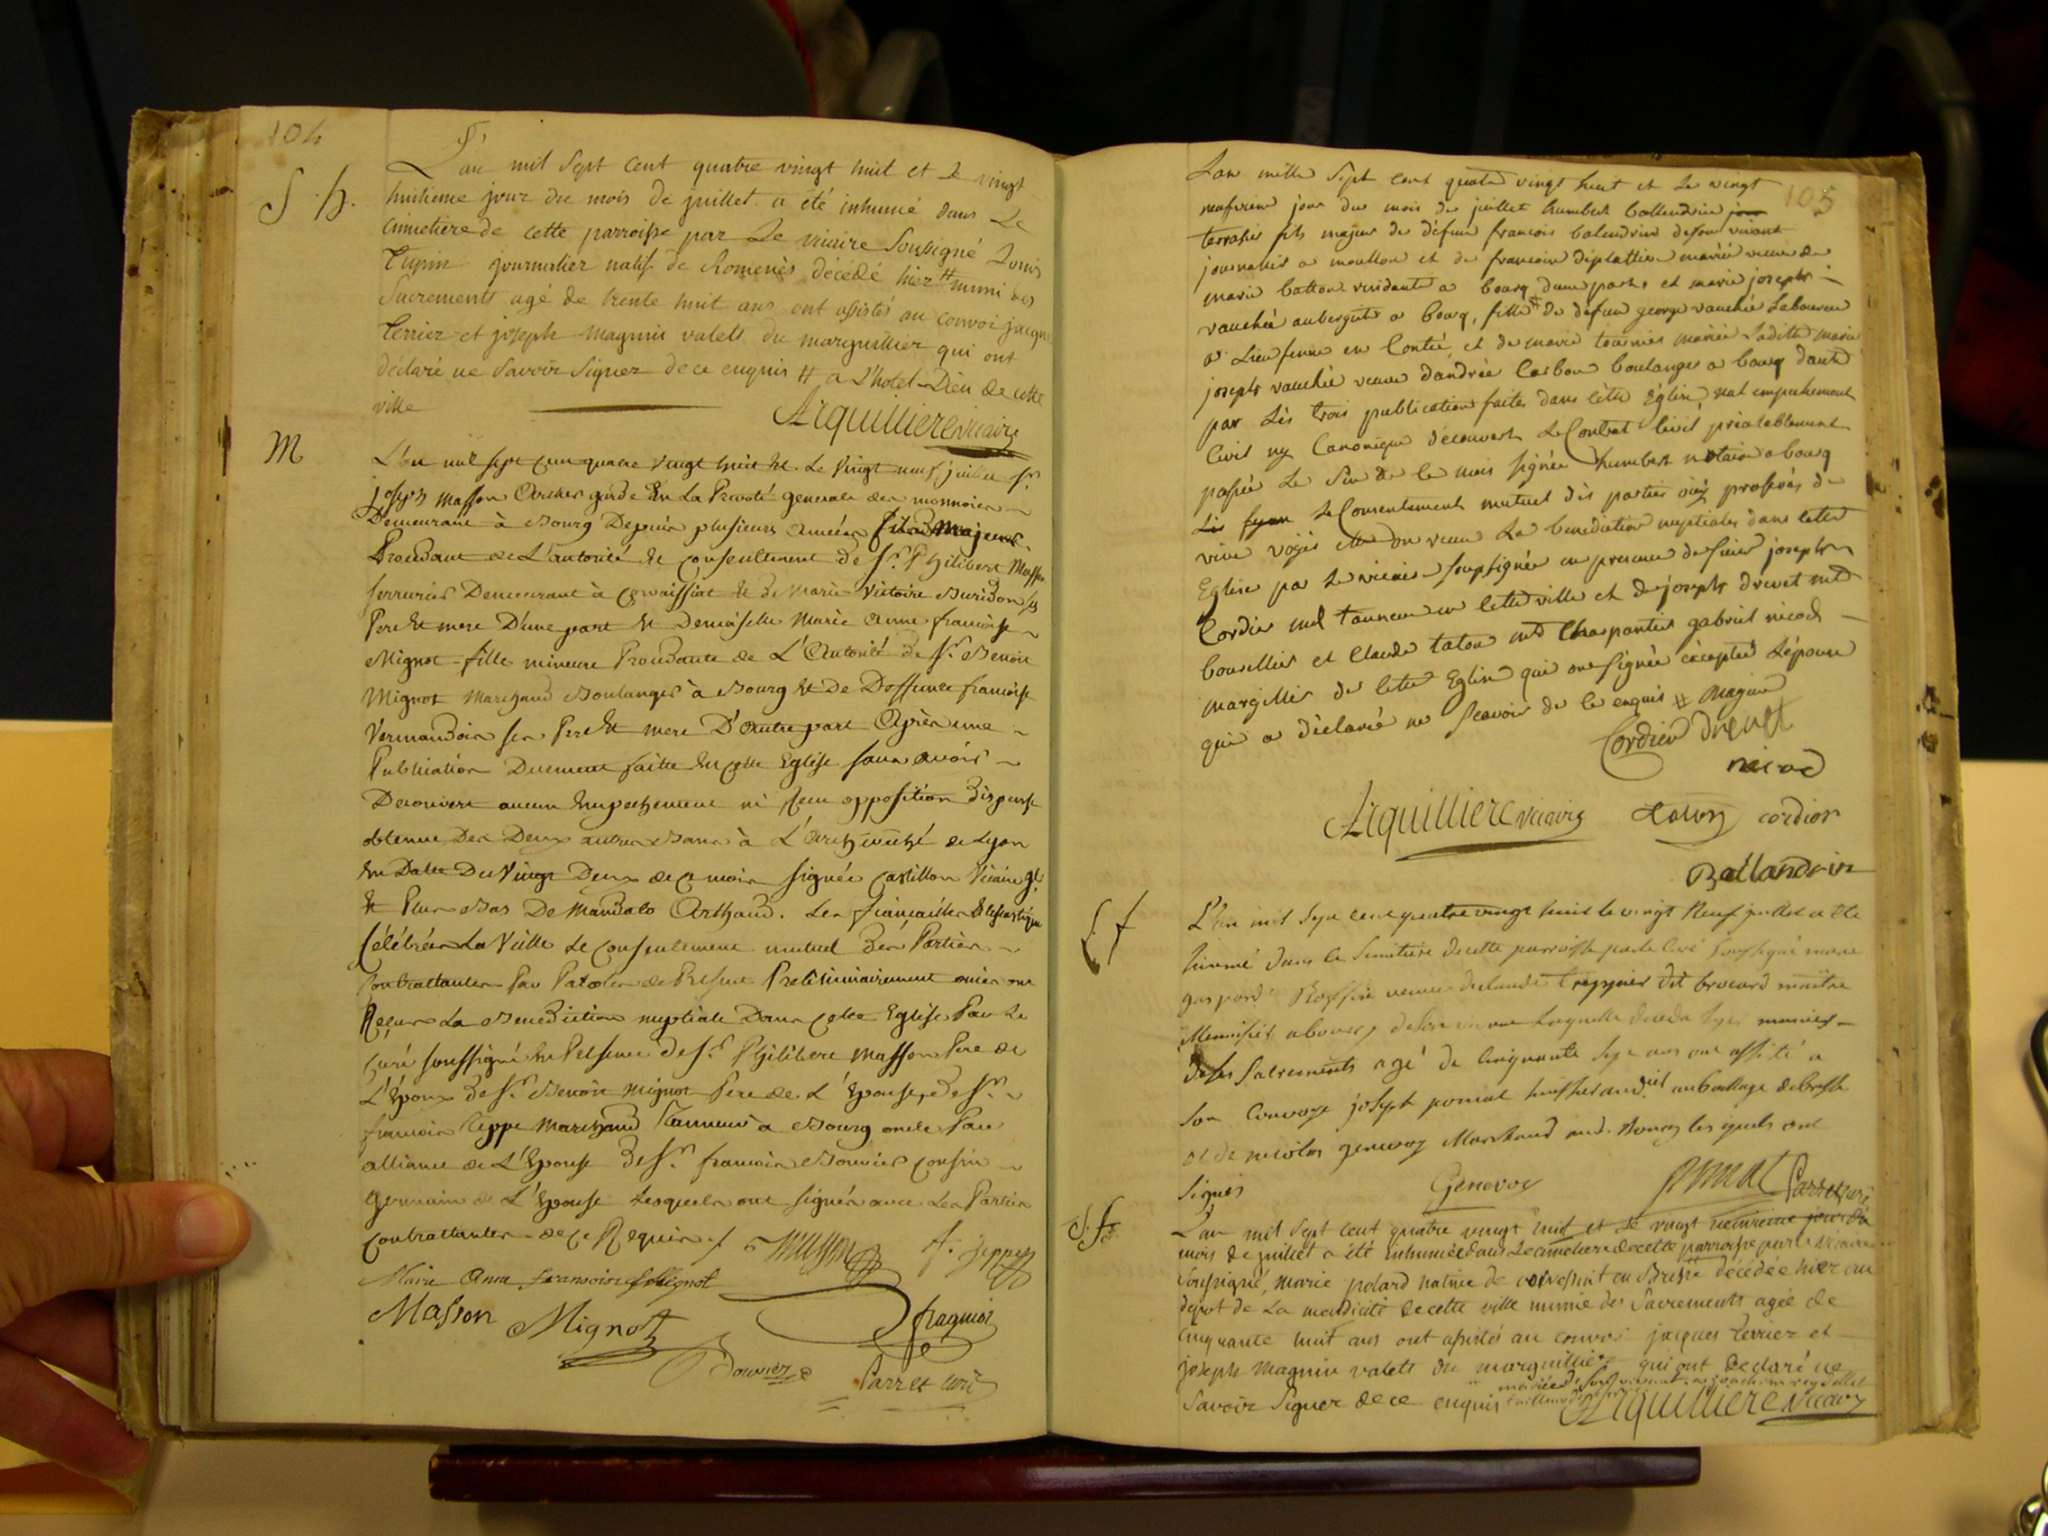 104
S. h.
L'an mil sept cent quatre vingt huit et le vingt
huitieme jour du mois de juillet a été inhumé dans le
cimetiere de cette parroisse par le vicaire soussigné Louis
Tupin journalier natif de Romenès décédé hier # muni des
Sacrements agé de trente huit ans ont assistés au convoi jacques
Terrier et joseph magnin valets du marguillier qui ont
déclaré ne Savoir Signer de ce enquis # a L'hotel-Dieu de cette
ville
Arquilliere vicaire
M
L'an mil sept cent quatre vingt huit et Le vingt neuf juillet Sr.
joseph Masson Archer garde en La Prevoté generale des monnoies
Demeurant à Bourg Depuis plusieurs années fils majeur
Procedant de L'autorité et consentement de Sr. Philibert Masson
serrurier Demeurant à et de Marie Victoire Buridon ses
Pere et mere D'une part et Demoiselle Marie Anne françoise
Mignot fille mineure Procedante de L'Autorité de Sr. Benoit
Mignot Marchand Boulanger à Bourg et De Deffunte françoise
Vermandois ses Pere et mere D'autre part Après une
Publication Duement faitte en cette Eglise sans avoir
Decouvert aucun empechement ni opposition Dispense
obtenue Des Deux autres Bans à L'Archeveché de Lyon
en Datte Du Vingt Deux de ce mois signée Castillon Vicaire gl.
et Plus Bas De Mandato Arthaud. Les fiancailles
Célébrées La Veille Le consentement mutuel Des Parties
Contractantes Par Paroles de Present Preliminairement ouies ont
Reçus La Benediction nuptiale Dans cette Eglise Par Le
curé soussigné en Presence de Sr. Philibert Masson Pere de
L'Epoux De Sr. Benoit Mignot Pere de L'Epouse, De Sr.
françois Teppe Marchand Tanneur à Bourg oncle Par
alliance de L'Epouse De Sr. françois Bouvier cousin
germain de L'Epouse Lesquels ont signés avec Les Parties
contractantes de ce Requis
Masson f. Teppe
Marie Anne francoise Mignot
Masson Mignot
Bouvier Parret curé
105
L'an mille sept cent quatre vingt huit et le vingt
neuffvieme jour du mois de juillet humbert ballandrin
terrassier fils majeur de défunt francois balandrin de son vivant
journalier a et de francoise veuve de
marie batton residante a bourg d'une part et marie josephe
vauchée aubergiste a bourg, fille de défun george vauchée Laboureur
a en Contée, et de marie mariée Ladite marie
josephe vauchée veuve d'andrée Carbon boulanger a bourg dautre
par Les trois publication faites dans cette Eglise, nul empechement
Civil ny Canonique découvert le Contrat Civil préalablement
passée le de ce mois signée humbert notaire a bourg
le Consentement mutuel dès parties ouÿ proferés de
vive elle ont recue la benediction nuptiales dans cette
Eglise par le vicaire soupsignée en presence de joseph
Cordier md tanneur en cette ville et de joseph drevet md
bourellier et Claude taton md Charpantier gabriel nicod
margillier de cette Eglise qui ont signée exceptée Lépouse
qui a déclarée ne scavoir de ce enquis #
Cordier Drevet
nicod
Arquilliere vicaire taton cordier
Ballandrin
L'an mil sept cent quatre vingt huit le vingt Neuf juillet a ete
humé dans le Simitiere de cette parroisse par le Curé soussigné marie
gasparde veuve de claude dit brocard maitre
Menuisier a bourg de son vivant Laquelle decedée hyer munie
de ses Sacrements agé de Cinquante sept ans ont assisté a
son Convoye joseph pomat huissier audict au baillage de bresse
et de nicolas genevoy Marchand aud. bourg lesquels ont
signés Genevoy Pomat Parret curé
S. f.
L'an mil sept cent quatre vingt huit et le vingt neuvieme jour du
mois de juillet a été inhumée dans le cimetiere de cette parroisse par le vicaire
soussigné, marie polard native de en Bresse # décédée hier au
depot de la mendicité de cette ville munie des Sacrements agée de
cinquante huit ans ont assistés au convoi jacques Terrier et
joseph magnin valets du marguillier qui ont declaré ne
Savoir Signer de ce enquis
Arquilliere vicaire